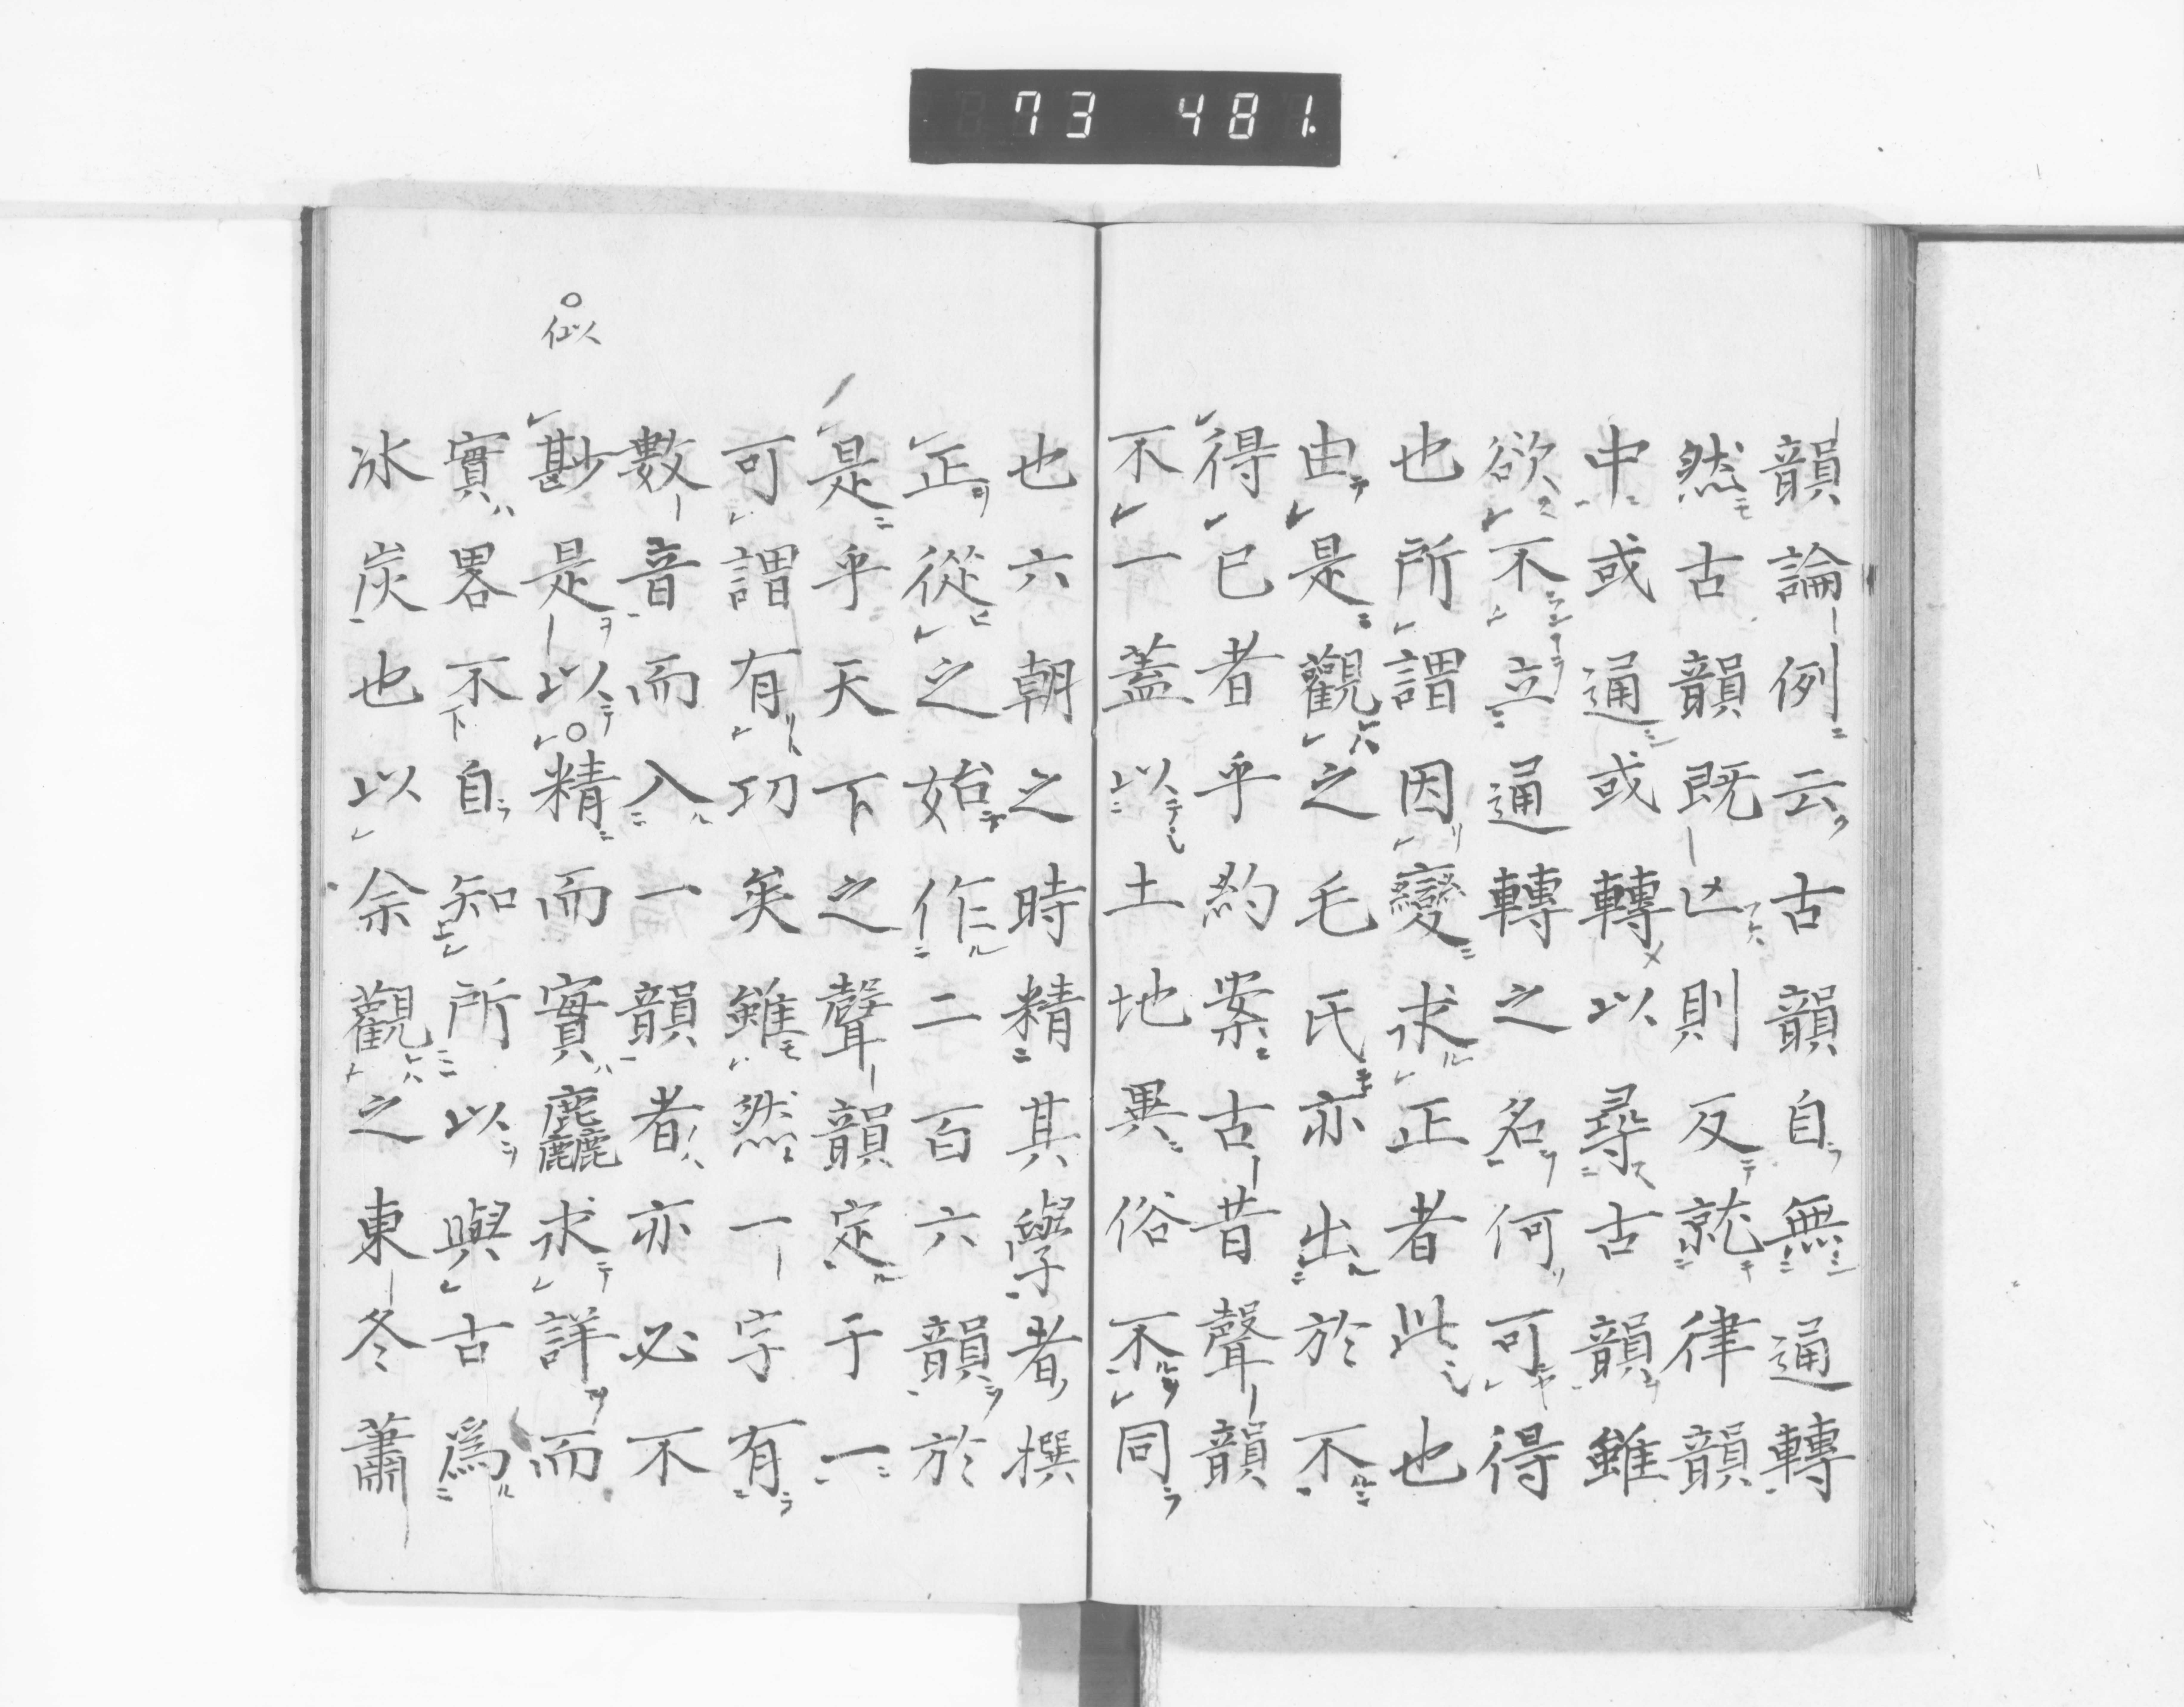 73 481.
韻論例云古韻自無通轉
然古韻既亡則反就律韻
中或通或轉以尋古韻雖
欲不立通轉之名何可得
也所謂因變求正者此也
由是觀之毛氏亦出於不
得已者乎約案古昔聲韻
不一蓋以土地異俗不同
也六朝之時精其學者撰
正從之始作二百六韻於
是乎天下之聲韻定于一
可謂有功矣雖然一字有
數音而入一韻者亦必不
尠是以精而實麤求詳而
實畧不自知所以與古爲
冰炭也以余觀之東冬蕭
○似